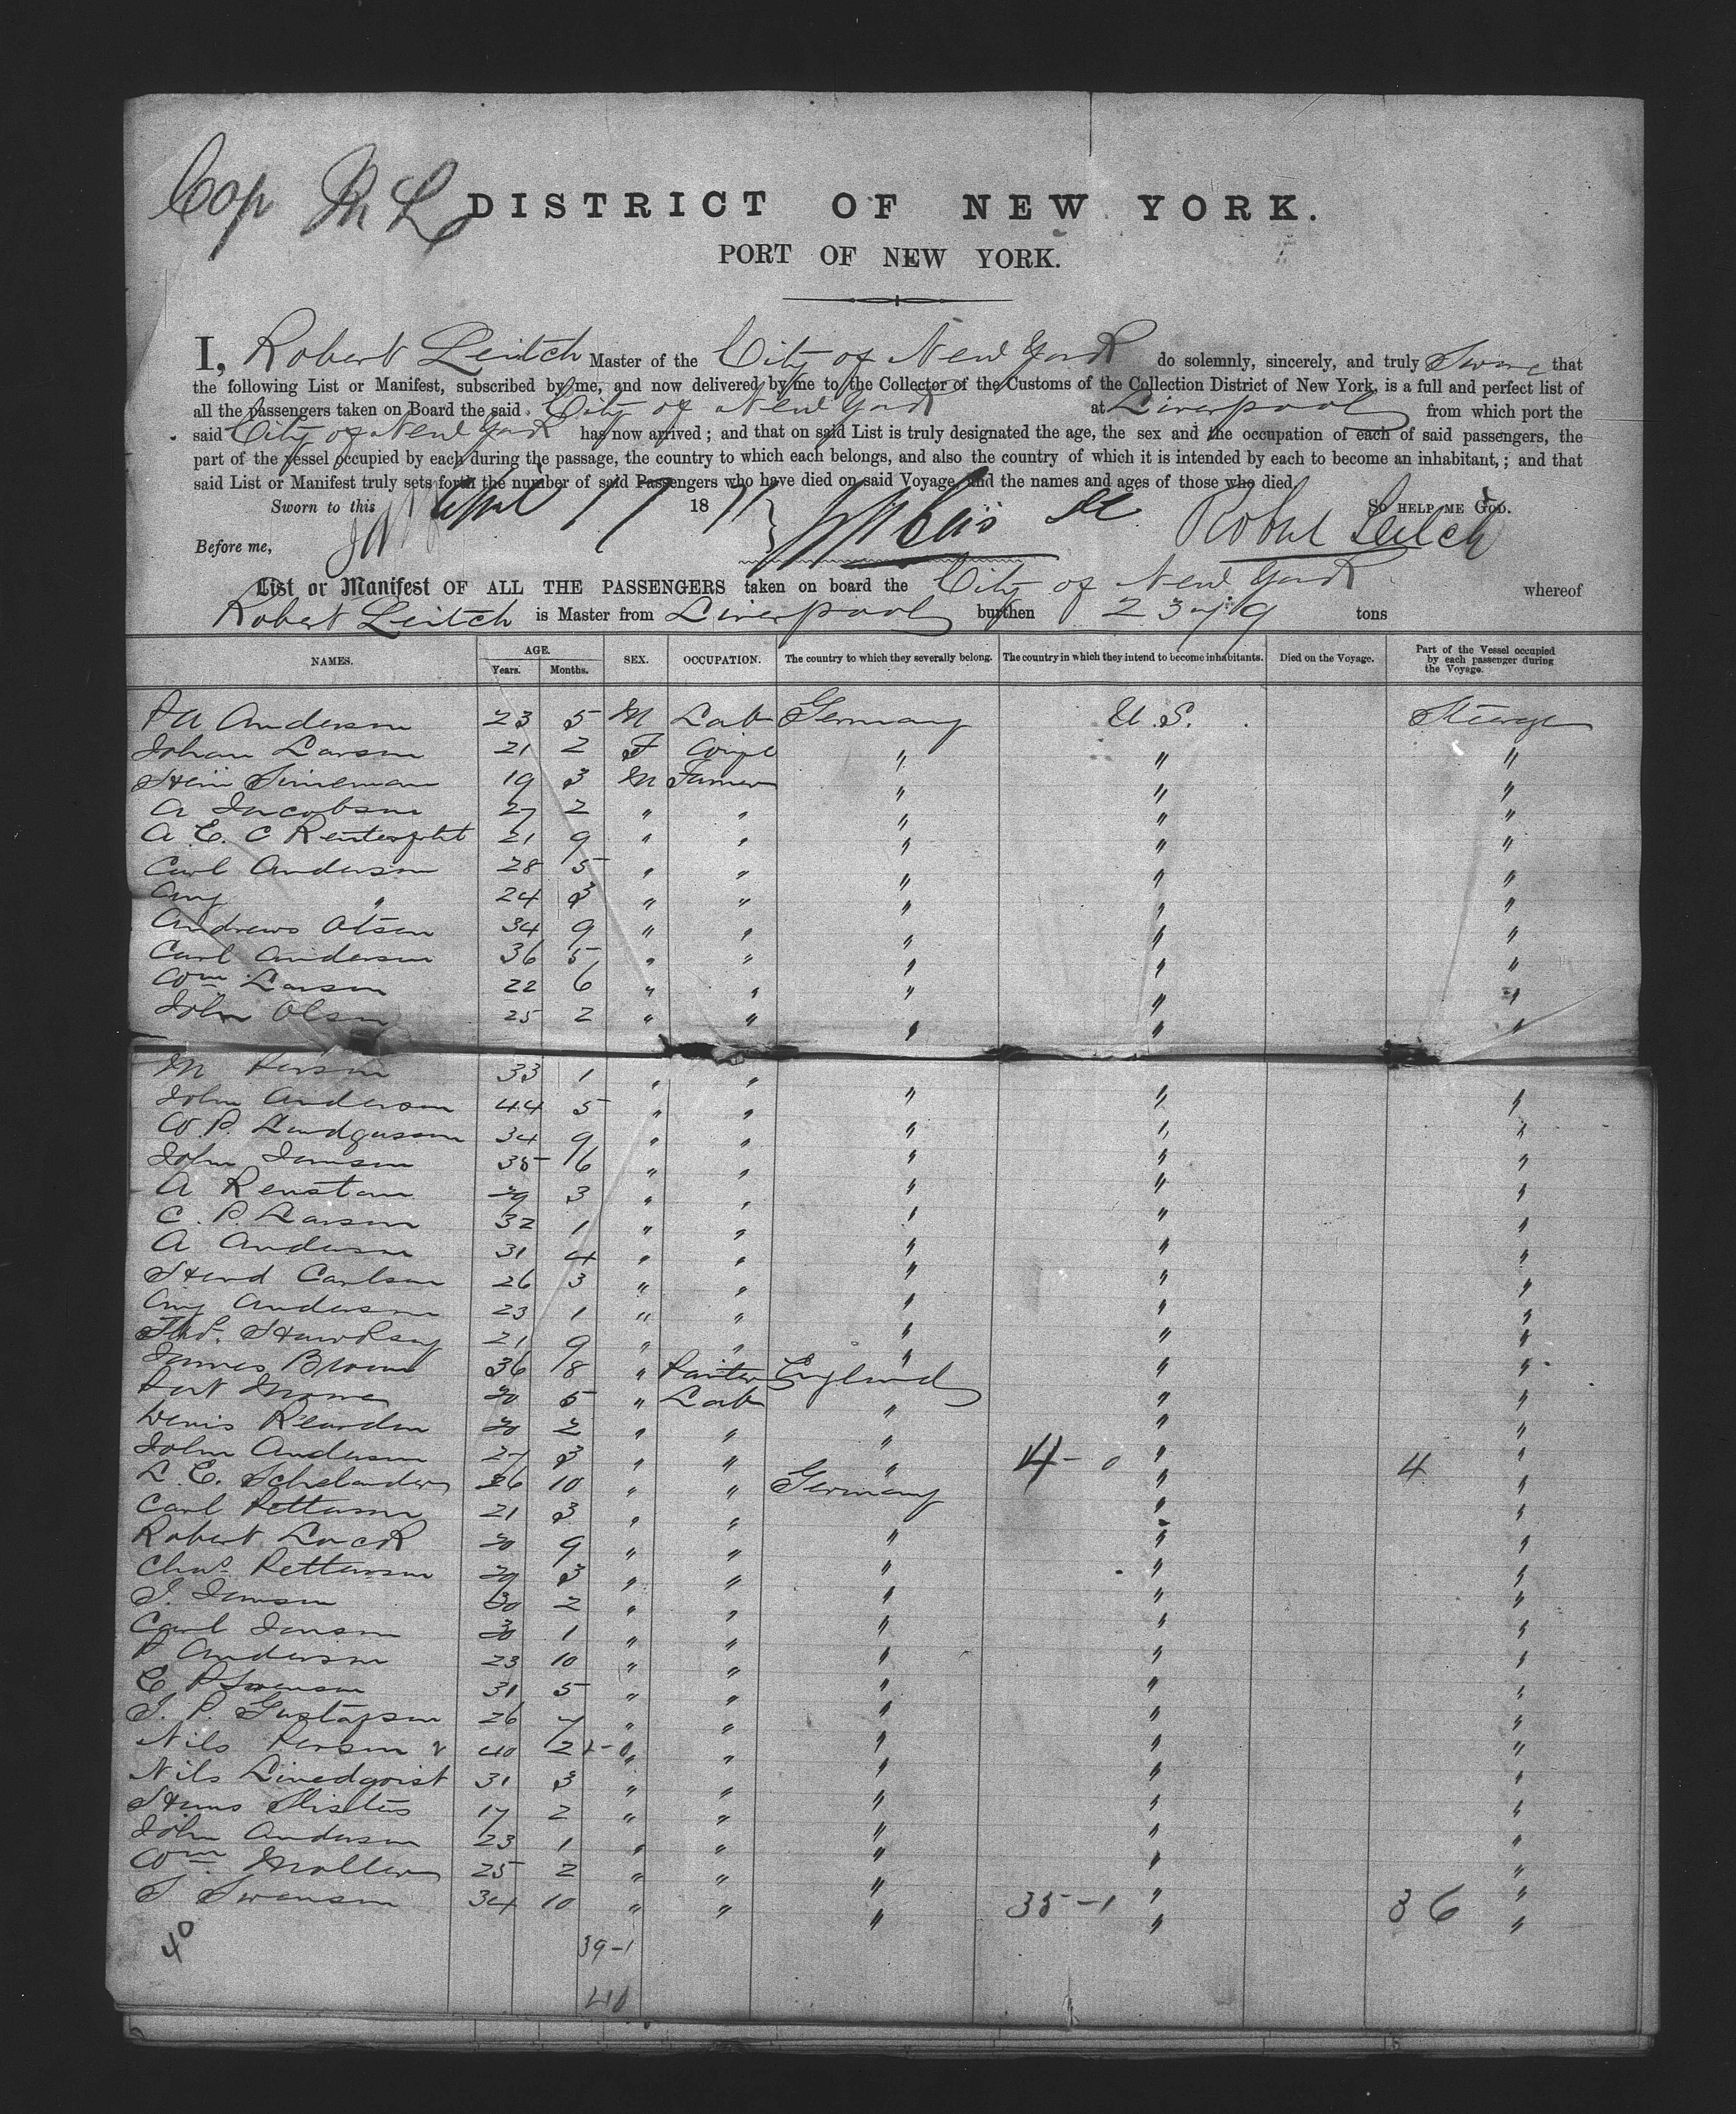 Cop
DISTRICT OF NEW YORK.
PORT OF NEW YORK.
I, Robert Leitch Master of the City of New York do solemnly, sincerely, and truly Swear that
the following List or Manifest, subscribed by me, and now delivered by me to the Collector of the Customs of the Collection District of New York, is a full and perfect list of
all the passengers taken on Board the said City of New York at Liverpool from which port the
said City of New York has now arrived; and that on said List is truly designated the age, the sex and the occupation of each of said passengers, the
part of the vessel occupied by each during the passage, the country to which each belongs, and also the country of which it is intended by each to become an inhabitant,; and that
said List or Manifest truly sets forth the number of said Passengers who have died on said Voyage, and the names and ages of those who died.
Sworn to this April 17 1871 So HELP ME GOD.
Before me, Robert Leitch
List or Manifest OF ALL THE PASSENGERS taken on board the City of New York whereof
Robert Leitch is Master from Liverpool burthen tons
NAMES. AGE. Years. Months. SEX. OCCUPATION. The country to which they severally belong. The country in which they intend to become inhabitants. Died on the Voyage. Part of the Vessel occupied by each passenger during the Voyage.
Anderson 23 5 M Lab Germany U.S. Steerage
Johan Larson 21 2 F Wife " " "
19 3 M Farmer " " "
A Jacobson 27 2 " " " " "
A. E. C 21 9 " " " " "
Carl Anderson 28 5 " " " " "
Aug " 24 3 " " " " "
Andrews Olsen 34 9 " " " " "
Carl Anderson 36 5 " " " " "
Wm Larson 22 6 " " " " "
John Olsen 25 2 " " " " "
M Person 33 1 " " " " "
John Anderson 44 5 " " " " "
W P. 34 9 " " " " "
John Jonson 35 6 " " " " "
A 29 3 " " " " "
C. P. Larson 32 1 " " " " "
A Anderson 31 4 " " " " "
Carlson 26 3 " " " " "
Aug Anderson 23 1 " " " " "
21 9 " " " " "
James Brown 36 8 " Painter England " "
30 5 " Lab " " "
Denis Reardon 30 2 " " " " "
John Anderson 27 3 " " " 4-0 " 4 "
L. E. 26 10 " " Germany " "
Carl Petterson 21 3 " " " " "
Robert 30 9 " " " " "
Chas. Petterson 29 3 " " " " "
J. Jonson 30 2 " " " " "
Carl Jonson 30 1 " " " " "
P Anderson 23 10 " " " " "
E P Swenson 31 5 " " " " "
J. P. Gustafson 26 7 " " " " "
Nils Person 40 2 " " " " "
Nils Linedqvist 31 3 " " " " "
17 2 " " " " "
John Anderson 23 1 " " " " "
Wm. 25 2 " " " " "
S Swenson 34 10 " " " 35-1 " 36 "
40 39-1
40